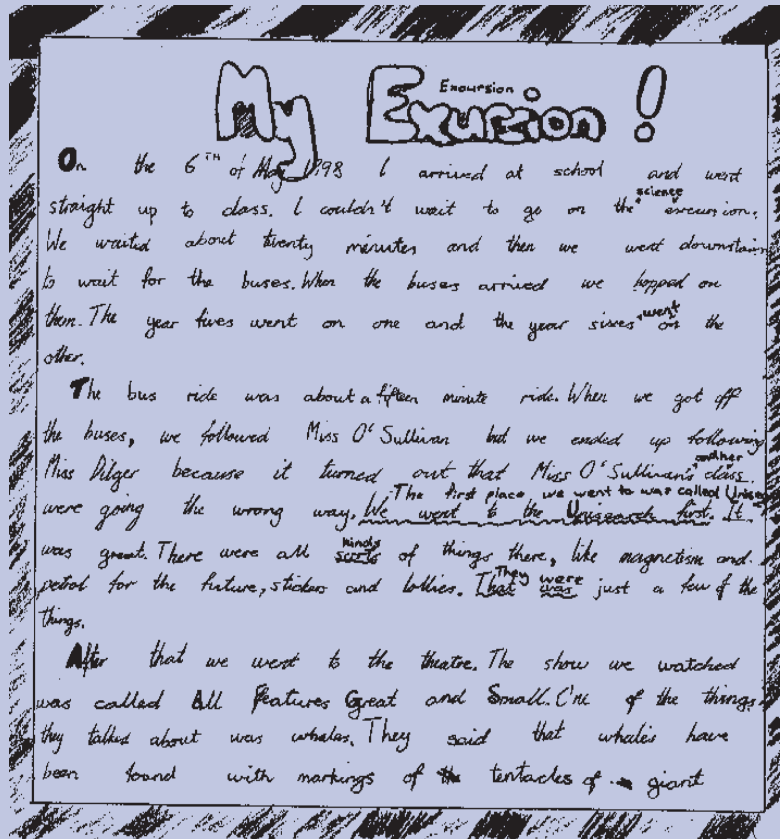 Excursion
My Exursion!
On the 6TH of May 1998 I arrived at school and went
science
straight up to class. I couldn't wait to go on the excursion.
We waited about twenty minutes and then we went downstairs
to wait for the buses. When the buses arrived we hopped on
went
them. The year fives went on one and the year sixes on the
other.
The bus ride was about a fifteen minute ride. When we got off
the buses, we followed Miss O'Sullivan but we ended up following
and her
Miss Dilger because it turned out that Miss O'Sullivan's class
The first place, we went to was called Unisearch
were going the wrong way. We went to the Unisearch first. It
kinds
was great. There were all sorts of things there, like magnetism and
They were
petrol for the future, stickers and lollies. That was just a few of the
things.
After that we went to the theatre. The show we watched
was called All Features Great and Small. One of the things
they talked about was whales. They said that whales have
been found with markings of the tentacles of giant